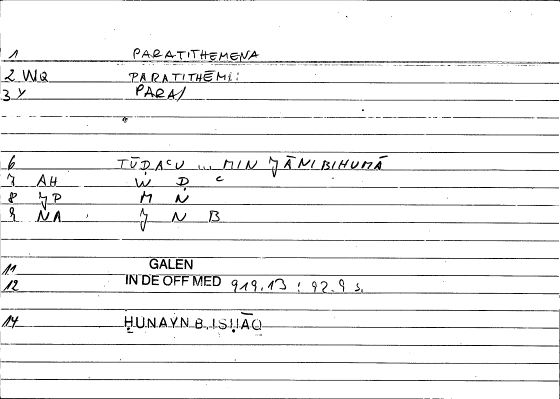 1 PARATITHEMENA
2 WQ PARATITHĒMI:
3 Y PARA/
"
6 TŪḌAʿU ... MIN ǦĀNIBIHUMĀ
7 AH W Ḍ ʿ
8 ǦP M N
9 NA ǦNB
11 GALEN
12 IN DE OFF MED 919.13 : 92.9 s.
14 ḤUNAYN B. ISḤĀQ